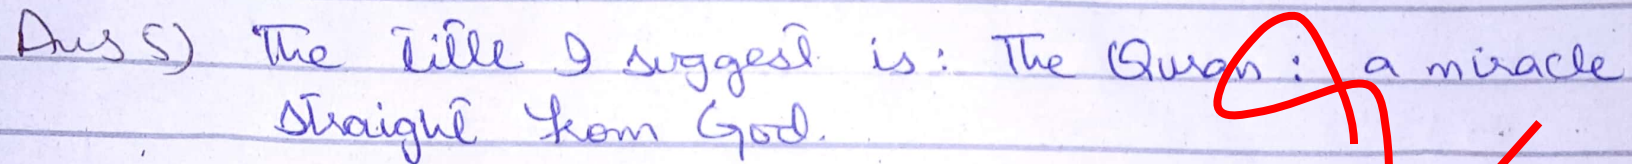 Ans 5) The title I suggest is: The Quran: a miracle
straight from God.